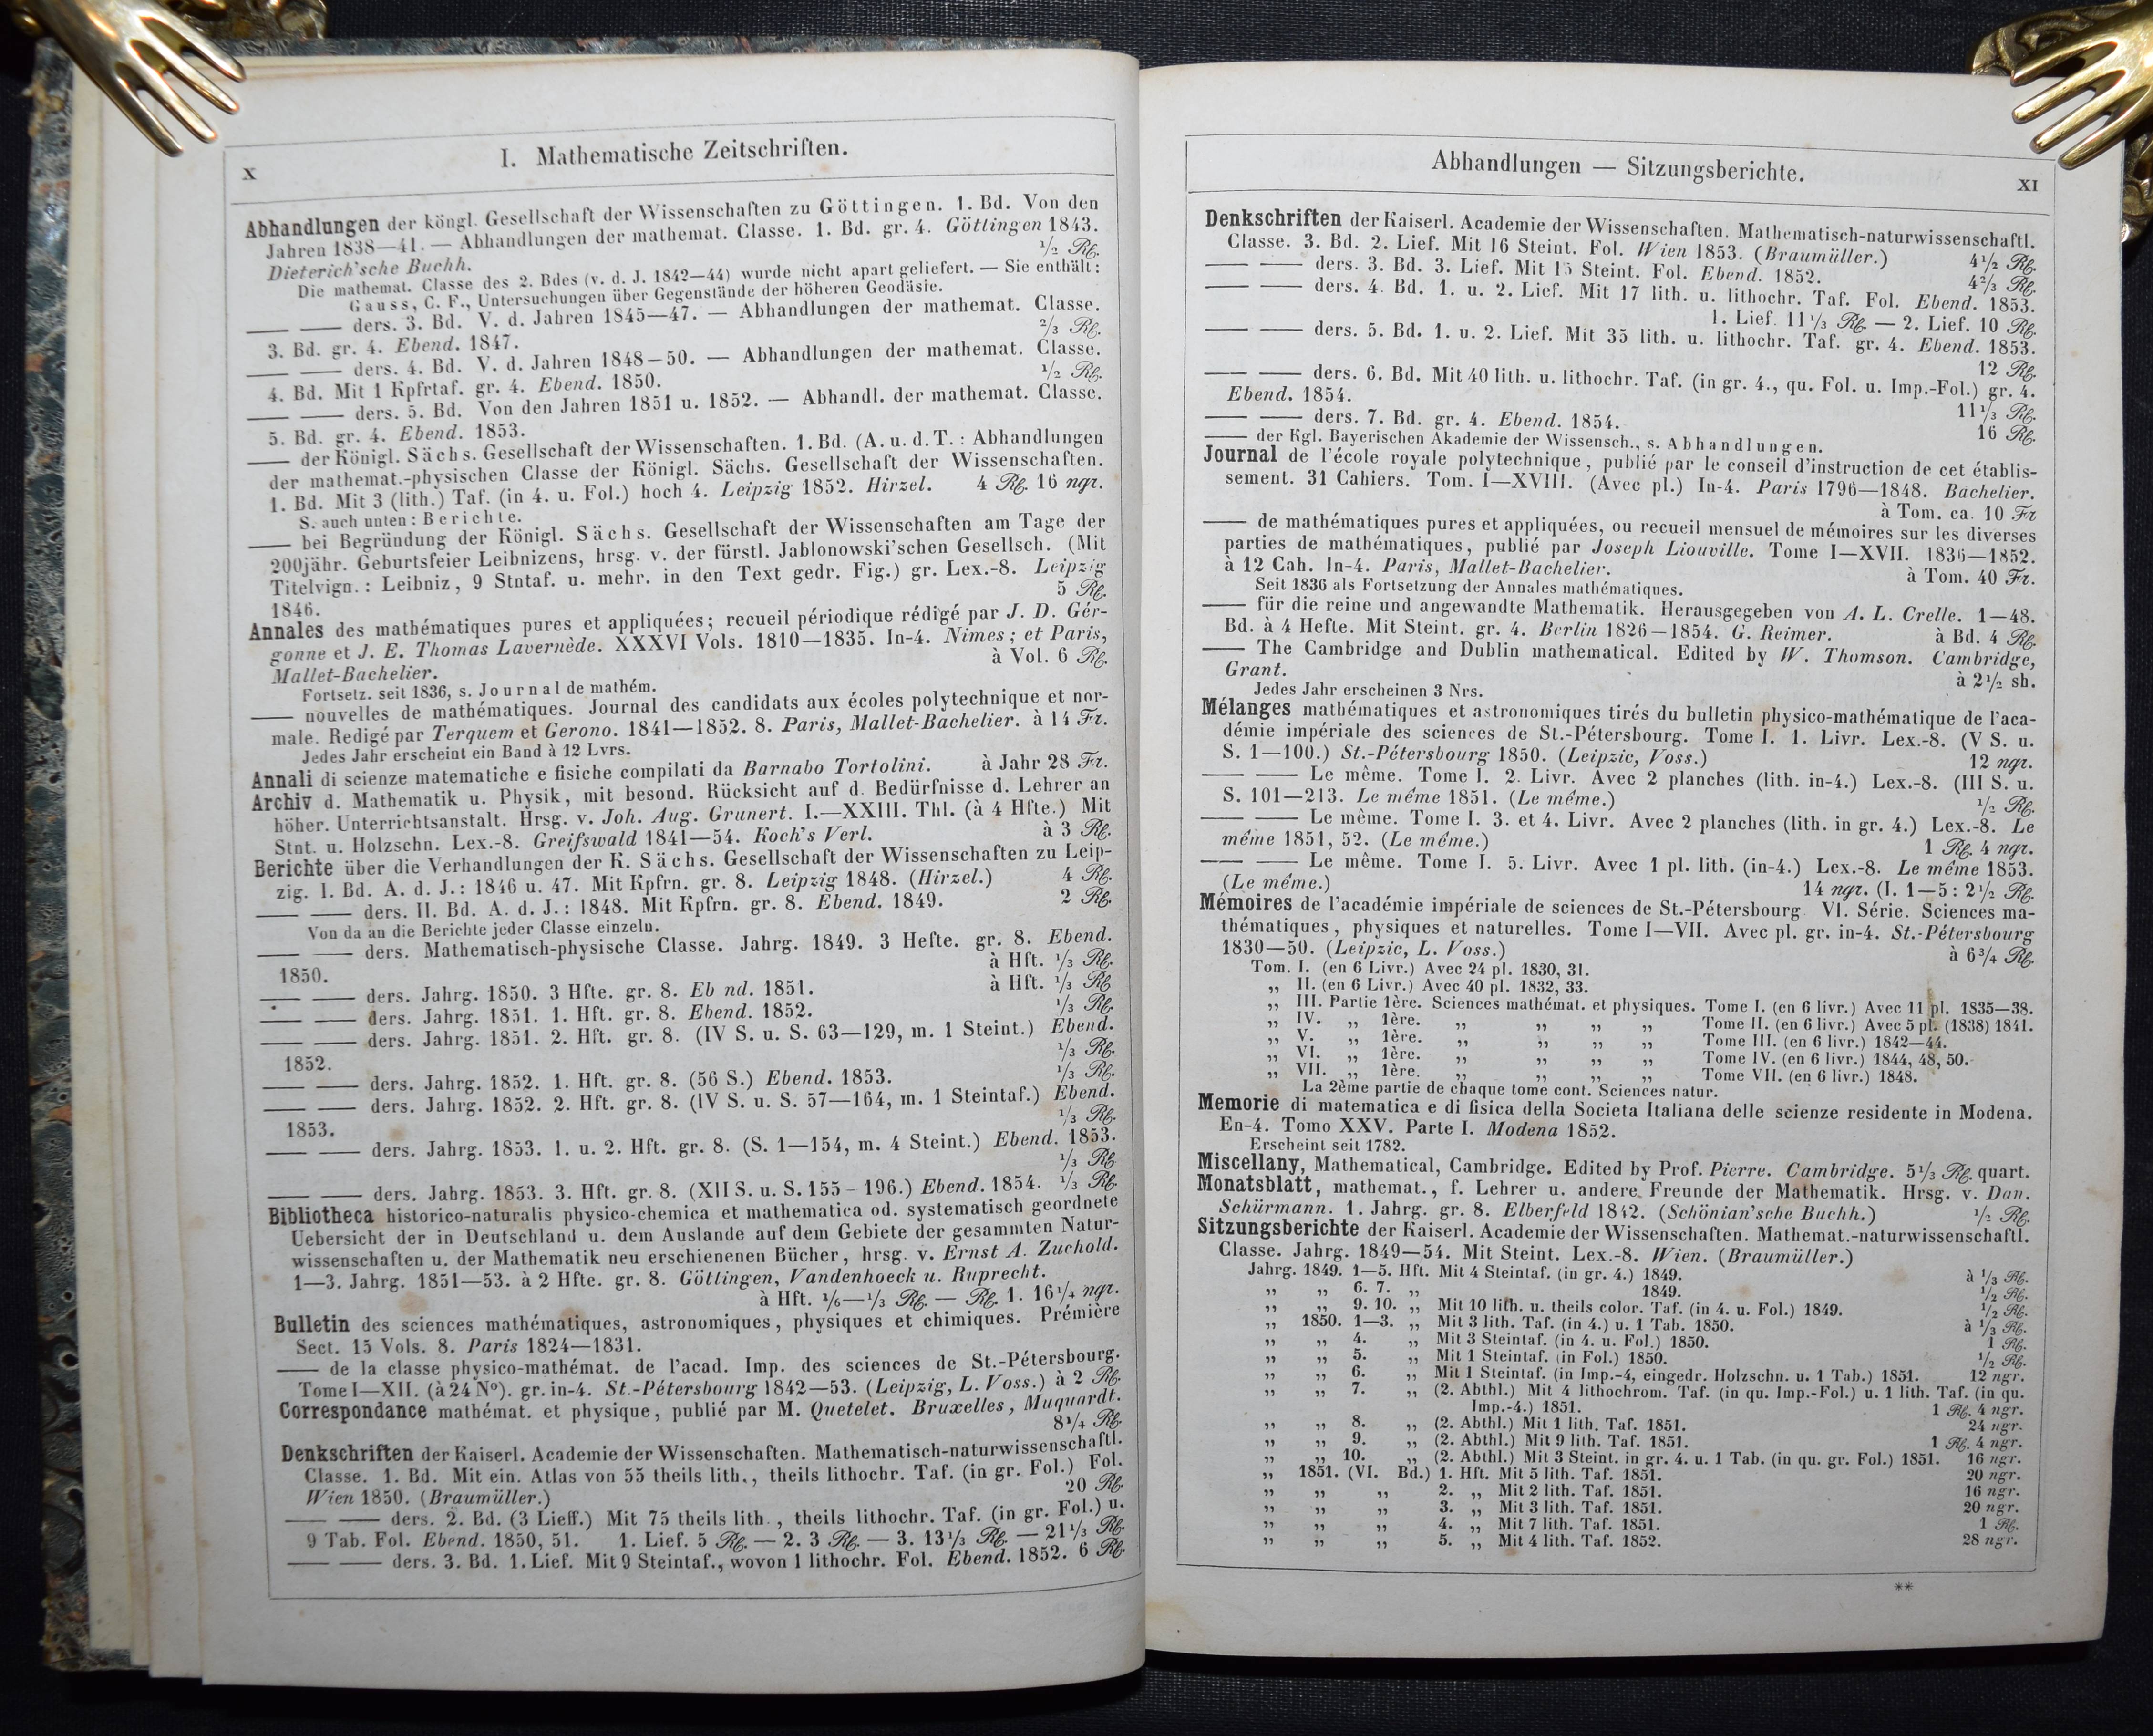 X
I. Mathematische Zeitschriften.
Abhandlungen der köngl. Gesellschaft der Wissenschaften zu Göttingen. 1. Bd. Von den
Jahren 1838—41. — Abhandlungen der mathemat. Classe. 1. Bd. gr. 4. Göttingen 1843.
Dieterich'sche Buchh. ½ Rℓ.
Die mathemat. Classe des 2. Bdes (v. d. J. 1842—44) wurde nicht apart geliefert. — Sie enthält:
Gauss, C. F., Untersuchungen über Gegenstände der höheren Geodäsie.
—— —— ders. 3. Bd. V. d. Jahren 1845—47. — Abhandlungen der mathemat. Classe.
3. Bd. gr. 4. Ebend. 1847. ⅔ Rℓ.
—— —— ders. 4. Bd. V. d. Jahren 1848—50. — Abhandlungen der mathemat. Classe.
4. Bd. Mit 1 Kpfrtaf. gr. 4. Ebend. 1850. ½ Rℓ.
—— —— ders. 5. Bd. Von den Jahren 1851 u. 1852. — Abhandl. der mathemat. Classe.
5. Bd. gr. 4. Ebend. 1853.
—— der Königl. Sächs. Gesellschaft der Wissenschaften. 1. Bd. (A. u. d. T.: Abhandlungen
der mathemat.-physischen Classe der Königl. Sächs. Gesellschaft der Wissenschaften.
1. Bd. Mit 3 (lith.) Taf. (in 4. u. Fol.) hoch 4. Leipzig 1852. Hirzel. 4 Rℓ. 16 ngr.
S. auch unten: Berichte.
—— bei Begründung der Königl. Sächs. Gesellschaft der Wissenschaften am Tage der
200jähr. Geburtsfeier Leibnizens, hrsg. v. der fürstl. Jablonowski'schen Gesellsch. (Mit
Titelvign.: Leibniz, 9 Stntaf. u. mehr. in den Text gedr. Fig.) gr. Lex.-8. Leipzig
1846. 5 Rℓ.
Annales des mathématiques pures et appliquées; recueil périodique rédigé par J. D. Gér-
gonne et J. E. Thomas Lavernède. XXXVI Vols. 1810—1835. In-4. Nimes; et Paris,
Mallet-Bachelier. à Vol. 6 Rℓ.
Fortsetz. seit 1836, s. Journal de mathém.
—— nouvelles de mathématiques. Journal des candidats aux écoles polytechnique et nor-
male. Redigé par Terquem et Gerono. 1841—1852. 8. Paris, Mallet-Bachelier. à 14 Fr.
Jedes Jahr erscheint ein Band à 12 Lvrs.
Annali di scienze matematiche e fisiche compilati da Barnabo Tortolini. à Jahr 28 Fr.
Archiv d. Mathematik u. Physik, mit besond. Rücksicht auf d. Bedürfnisse d. Lehrer an
höher. Unterrichtsanstalt. Hrsg. v. Joh. Aug. Grunert. I.—XXIII. Thl. (à 4 Hfte.) Mit
Stnt. u. Holzschn. Lex.-8. Greifswald 1841—54. Koch's Verl. à 3 Rℓ.
Berichte über die Verhandlungen der K. Sächs. Gesellschaft der Wissenschaften zu Leip-
zig. I. Bd. A. d. J.: 1846 u. 47. Mit Kpfrn. gr. 8. Leipzig 1848. (Hirzel.) 4 Rℓ.
—— —— ders. II. Bd. A. d. J.: 1848. Mit Kpfrn. gr. 8. Ebend. 1849. 2 Rℓ.
Von da an die Berichte jeder Classe einzeln.
—— —— ders. Mathematisch-physische Classe. Jahrg. 1849. 3 Hefte. gr. 8. Ebend.
1850. à Hft. ⅓ Rℓ.
—— —— ders. Jahrg. 1850. 3 Hfte. gr. 8. Eb nd. 1851. à Hft. ⅓ Rℓ
—— —— ders. Jahrg. 1851. 1. Hft. gr. 8. Ebend. 1852. ⅓ Rℓ.
—— —— ders. Jahrg. 1851. 2. Hft. gr. 8. (IV S. u. S. 63—129, m. 1 Steint.) Ebend.
1852. ⅓ Rℓ.
—— —— ders. Jahrg. 1852. 1. Hft. gr. 8. (56 S.) Ebend. 1853. ⅓ Rℓ.
—— —— ders. Jahrg. 1852. 2. Hft. gr. 8. (IV S. u. S. 57—164, m. 1 Steintaf.) Ebend.
1853. ⅓ Rℓ.
—— —— ders. Jahrg. 1853. 1. u. 2. Hft. gr. 8. (S. 1—154, m. 4 Steint.) Ebend. 1853.
⅓ Rℓ
—— —— ders. Jahrg. 1853. 3. Hft. gr. 8. (XII S. u. S. 155–196.) Ebend. 1854. ⅓ Rℓ.
Bibliotheca historico-naturalis physico-chemica et mathematica od. systematisch geordnete
Uebersicht der in Deutschland u. dem Auslande auf dem Gebiete der gesammten Natur-
wissenschaften u. der Mathematik neu erschienenen Bücher, hrsg. v. Ernst A. Zuchold.
1—3. Jahrg. 1851—53. à 2 Hfte. gr. 8. Göttingen, Vandenhoeck u. Ruprecht.
à Hft. ⅙—⅓ Rℓ. — Rℓ. 1. 16¼ ngr.
Bulletin des sciences mathématiques, astronomiques, physiques et chimiques. Prémière
Sect. 15 Vols. 8. Paris 1824—1831.
—— de la classe physico-mathémat. de l'acad. Imp. des sciences de St.-Pétersbourg.
Tome I—XII. (à 24 Nº). gr. in-4. St.-Pétersbourg 1842—53. (Leipzig, L. Voss.) à 2 Rℓ.
Correspondance mathémat. et physique, publié par M. Quetelet. Bruxelles, Muquardt.
8¼ Rℓ.
Denkschriften der Kaiserl. Academie der Wissenschaften. Mathematisch-naturwissenschaftl.
Classe. 1. Bd. Mit ein. Atlas von 55 theils lith., theils lithochr. Taf. (in gr. Fol.) Fol.
Wien 1850. (Braumüller.) 20 Rℓ.
—— —— ders. 2. Bd. (3 Lieff.) Mit 75 theils lith., theils lithochr. Taf. (in gr. Fol.) u.
9 Tab. Fol. Ebend. 1850, 51. 1. Lief. 5 Rℓ. — 2. 3 Rℓ. — 3. 13⅓ Rℓ. — 21⅓ Rℓ.
—— —— ders. 3. Bd. 1. Lief. Mit 9 Steintaf., wovon 1 lithochr. Fol. Ebend. 1852. 6 Rℓ.
Abhandlungen — Sitzungsberichte.
XI
Denkschriften der Kaiserl. Academie der Wissenschaften. Mathematisch-naturwissenschaftl.
Classe. 3. Bd. 2. Lief. Mit 16 Steint. Fol. Wien 1853. (Braumüller.) 4½ Rℓ.
—— —— ders. 3. Bd. 3. Lief. Mit 15 Steint. Fol. Ebend. 1852. 4⅔ Rℓ.
—— —— ders. 4. Bd. 1. u. 2. Lief. Mit 17 lith. u. lithochr. Taf. Fol. Ebend. 1853.
1. Lief. 11⅓ Rℓ. — 2. Lief. 10 Rℓ.
—— —— ders. 5. Bd. 1. u. 2. Lief. Mit 35 lith. u. lithochr. Taf. gr. 4. Ebend. 1853.
12 Rℓ.
—— —— ders. 6. Bd. Mit 40 lith. u. lithochr. Taf. (in gr. 4., qu. Fol. u. Imp.-Fol.) gr. 4.
Ebend. 1854. 11⅓ Rℓ.
—— —— ders. 7. Bd. gr. 4. Ebend. 1854. 16 Rℓ.
—— der Kgl. Bayerischen Akademie der Wissensch., s. Abhandlungen.
Journal de l'école royale polytechnique, publié par le conseil d'instruction de cet établis-
sement. 31 Cahiers. Tom. I—XVIII. (Avec pl.) In-4. Paris 1796—1848. Bachelier.
à Tom. ca. 10 Fr
—— de mathématiques pures et appliquées, ou recueil mensuel de mémoires sur les diverses
parties de mathématiques, publié par Joseph Liouville. Tome I—XVII. 1836—1852.
à 12 Cah. In-4. Paris, Mallet-Bachelier. à Tom. 40 Fr.
Seit 1836 als Fortsetzung der Annales mathématiques.
—— für die reine und angewandte Mathematik. Herausgegeben von A. L. Crelle. 1—48.
Bd. à 4 Hefte. Mit Steint. gr. 4. Berlin 1826—1854. G. Reimer. à Bd. 4 Rℓ.
—— The Cambridge and Dublin mathematical. Edited by W. Thomson. Cambridge,
Grant. à 2½ sh.
Jedes Jahr erscheinen 3 Nrs.
Mélanges mathématiques et astronomiques tirés du bulletin physico-mathématique de l'aca-
démie impériale des sciences de St.-Pétersbourg. Tome I. 1. Livr. Lex.-8. (V S. u.
S. 1—100.) St.-Pétersbourg 1850. (Leipzic, Voss.) 12 ngr.
—— —— Le même. Tome I. 2. Livr. Avec 2 planches (lith. in-4.) Lex.-8. (III S. u.
S. 101—213. Le même 1851. (Le même.) ½ Rℓ.
—— —— Le même. Tome I. 3. et 4. Livr. Avec 2 planches (lith. in gr. 4.) Lex.-8. Le
même 1851, 52. (Le même.) 1 Rℓ. 4 ngr.
—— —— Le même. Tome I. 5. Livr. Avec 1 pl. lith. (in-4.) Lex.-8. Le même 1853.
(Le même.) 14 ngr. (I. 1—5: 2½ Rℓ.
Mémoires de l'académie impériale de sciences de St.-Pétersbourg VI. Série. Sciences ma-
thématiques, physiques et naturelles. Tome I—VII. Avec pl. gr. in-4. St.-Pétersbourg
1830—50. (Leipzic, L. Voss.) à 6¾ Rℓ.
Tom. I. (en 6 Livr.) Avec 24 pl. 1830, 31.
„ II. (en 6 Livr.) Avec 40 pl. 1832, 33.
„ III. Partie 1ère. Sciences mathémat. et physiques. Tome I. (en 6 livr.) Avec 11 pl. 1835—38.
„ IV. „ 1ère. „ „ „ „ Tome II. (en 6 livr.) Avec 5 pl. (1838) 1841.
„ V. „ 1ère. „ „ „ „ Tome III. (en 6 livr.) 1842—44.
„ VI. „ 1ère. „ „ „ „ Tome IV. (en 6 livr.) 1844, 48, 50.
„ VII. „ 1ère. „ „ „ „ Tome VII. (en 6 livr.) 1848.
La 2ème partie de chaque tome cont. Sciences natur.
Memorie di matematica e di fisica della Societa Italiana delle scienze residente in Modena.
En-4. Tomo XXV. Parte I. Modena 1852.
Erscheint seit 1782.
Miscellany, Mathematical, Cambridge. Edited by Prof. Pierre. Cambridge. 5⅓ Rℓ. quart.
Monatsblatt, mathemat., f. Lehrer u. andere Freunde der Mathematik. Hrsg. v. Dan.
Schürmann. 1. Jahrg. gr. 8. Elberfeld 1842. (Schönian'sche Buchh.) ½ Rℓ.
Sitzungsberichte der Kaiserl. Academie der Wissenschaften. Mathemat.-naturwissenschaftl.
Classe. Jahrg. 1849—54. Mit Steint. Lex.-8. Wien. (Braumüller.)
Jahrg. 1849. 1—5. Hft. Mit 4 Steintaf. (in gr. 4.) 1849. à ⅓ Rℓ.
„ „ 6. 7. „ 1849. ½ Rℓ.
„ „ 9. 10. „ Mit 10 lith. u. theils color. Taf. (in 4. u. Fol.) 1849. ½ Rℓ.
„ 1850. 1—3. „ Mit 3 lith. Taf. (in 4.) u. 1 Tab. 1850. à ⅓ Rℓ.
„ „ 4. „ Mit 3 Steintaf. (in 4. u. Fol.) 1850. 1 Rℓ.
„ „ 5. „ Mit 1 Steintaf. (in Fol.) 1850. ½ Rℓ.
„ „ 6. „ Mit 1 Steintaf. (in Imp.-4, eingedr. Holzschn. u. 1 Tab.) 1851. 12 ngr.
„ „ 7. „ (2. Abthl.) Mit 4 lithochrom. Taf. (in qu. Imp.-Fol.) u. 1 lith. Taf. (in qu.
Imp.-4.) 1851. 1 Rℓ. 4 ngr.
„ „ 8. „ (2. Abthl.) Mit 1 lith. Taf. 1851. 24 ngr.
„ „ 9. „ (2. Abthl.) Mit 9 lith. Taf. 1851. 1 Rℓ. 4 ngr.
„ „ 10. „ (2. Abthl.) Mit 3 Steint. in gr. 4. u. 1 Tab. (in qu. gr. Fol.) 1851. 16 ngr.
„ 1851. (VI. Bd.) 1. Hft. Mit 5 lith. Taf. 1851. 20 ngr.
„ „ „ 2. „ Mit 2 lith. Taf. 1851. 16 ngr.
„ „ „ 3. „ Mit 3 lith. Taf. 1851. 20 ngr.
„ „ „ 4. „ Mit 7 lith. Taf. 1851. 1 Rℓ.
„ „ „ 5. „ Mit 4 lith. Taf. 1852. 28 ngr.
**